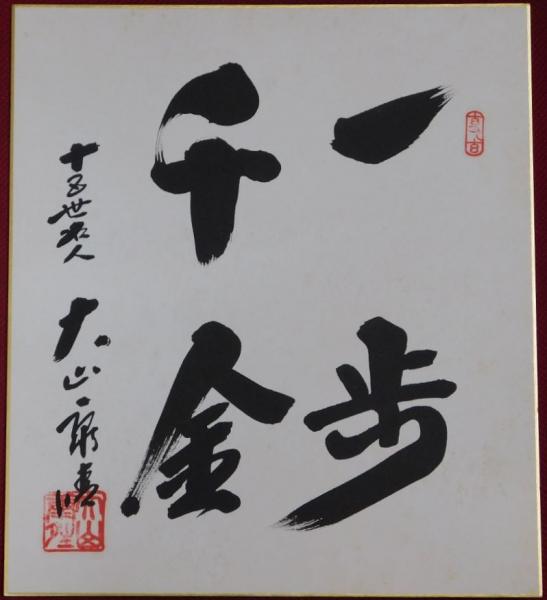 一歩
千金
十五世名人
大山康晴